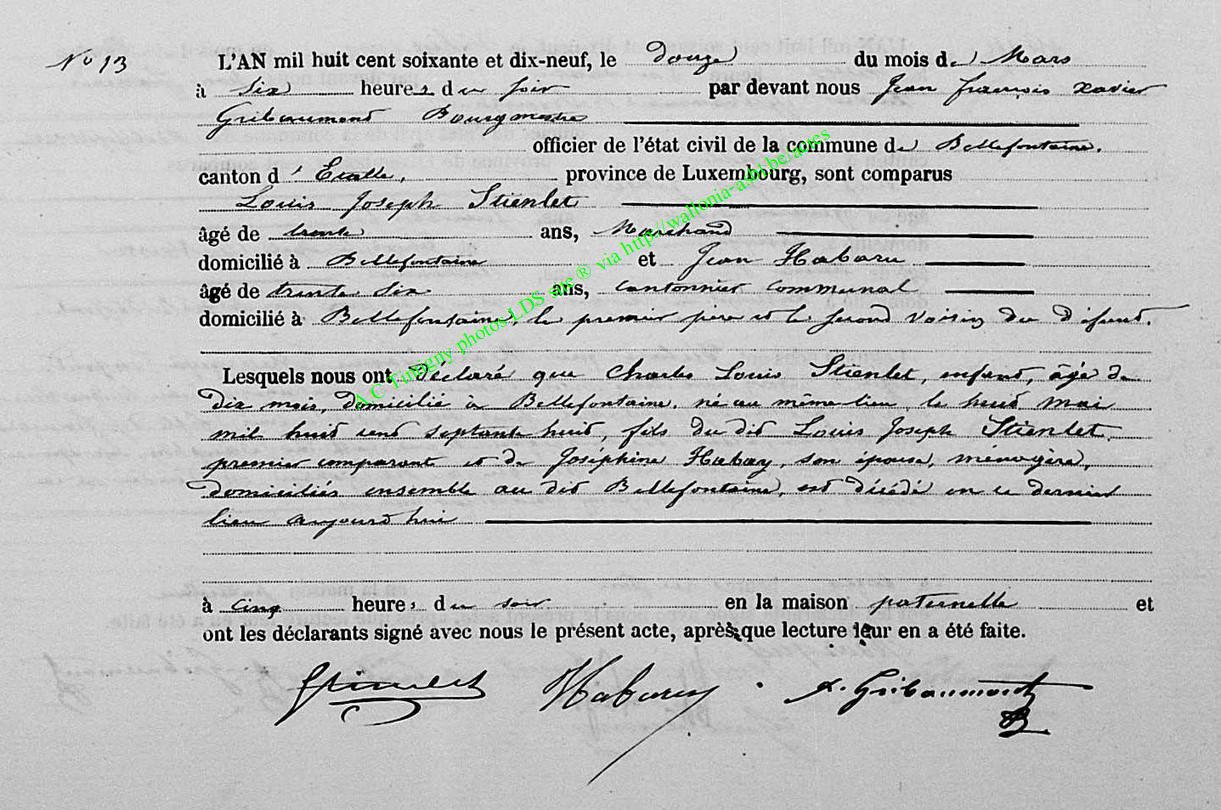 No 13
L'AN mil huit cent soixante et dix-neuf, le douze du mois de Mars
à six heures du soir par devant nous Jean François Xavier
Gribaumont Bourgmestre
officier de l'état civil de la commune de Bellefontaine.
canton d'Etalle, province de Luxembourg, sont comparus
Louis Joseph Stienlet
âgé de trente ans, Marchand
domicilié à Bellefontaine et Jean Habaru
âgé de trente six ans, cantonnier communal
domicilié à Bellefontaine, le premier père et le second voisin du défunt.
Lesquels nous ont déclaré que Charles Louis Stienlet, enfant, âgé de
dix mois, domicilié à Bellefontaine, né au même lieu, le huit mai
mil huit cent septante huit, fils du dit Louis Joseph Stienlet,
premier comparant et de Joséphine Habay, son épouse, menagère,
domiciliés ensemble au dit Bellefontaine, est décédé en ce dernier
lieu aujourd'hui
à cinq heures du soir en la maison paternelle et
ont les déclarants signé avec nous le présent acte, après que lecture leur en a été faite.
Stienlet Habaru X. Gribaumont
A.C Tintigny photos LDS site ® via http://wallonia-asbl.be/actes